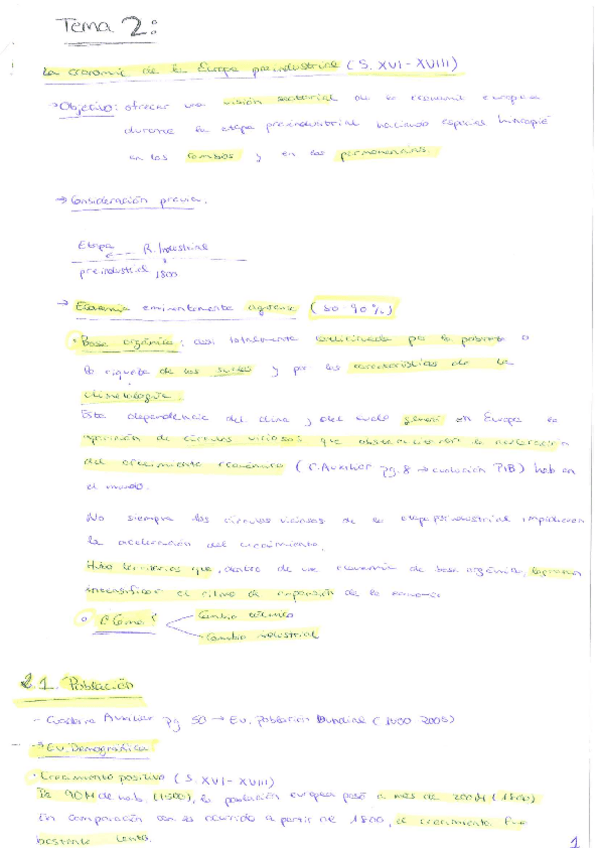 Tema 2:
La economía de la Europa preindustrial (S. XVI - XVIII)
→ Objetivo: ofrecer una visión sectorial de la economía europea
durante la etapa preindustrial haciendo especial hincapié
en los cambios y en las permanencias.
→ Consideración previa.
Etapa ← R. Industrial
preindustrial 1800
→ Economía eminentemente agraria (80-90%)
• Base orgánica: casi totalmente condicionada por la pobreza o
la riqueza de los suelos y por las características de la
climatología.
Esta dependencia del clima y del suelo generó en Europa la
aparición de círculos viciosos que obstaculizaron la aceleración
del crecimiento económico (C. Auxiliar pg. 8 → evolución PIB) hab en
el mundo.
No siempre los círculos viciosos de la etapa preindustrial impidieron
la aceleración del crecimiento.
Hubo territorios que, dentro de una economía de base orgánica, lograron
intensificar el ritmo de expansión de la economía
◦ ¿Cómo? Cambio técnico
Cambio industrial
2.1. Población
- Cuaderno Auxiliar pg 50 → Ev. Población Mundial (1000 2005)
-→ Ev. Demográfica
• Crecimiento positivo (S. XVI - XVIII)
De 90M de hab. (1500), la población europea pasó a más de 200M (1800)
En comparación con lo ocurrido a partir de 1800, el crecimiento fue
bastante lento.
1